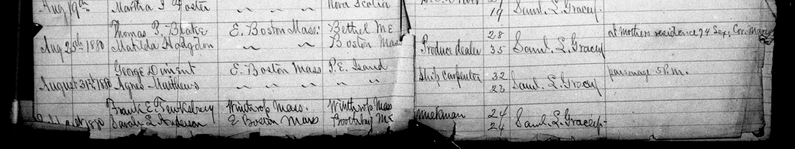 Aug 19th Martha J Foster Nova Scotia 19 Saml. L. Gracey
Thomas P. Blake E. Boston Mass. Bethel Me 28
Aug 25th 1880 Matilda Hodgdon " " Boston Mass Produce dealer 35 Saml. L. Gracey at Mothers residence 94 Sex. Cor. Marion
George Diment E. Boston Mass P.E. Island Ship carpenter 32 parsonage 8 P.M.
August 31st 1880 Agnes Matthews " " " " 23 Saml. L. Gracey
Frank E. Winthrop Mass. Winthrop Mass milkman 24
1880 Sarah L. Anderson E Boston Mass Boothbay Me 24 Saml. L. Gracey